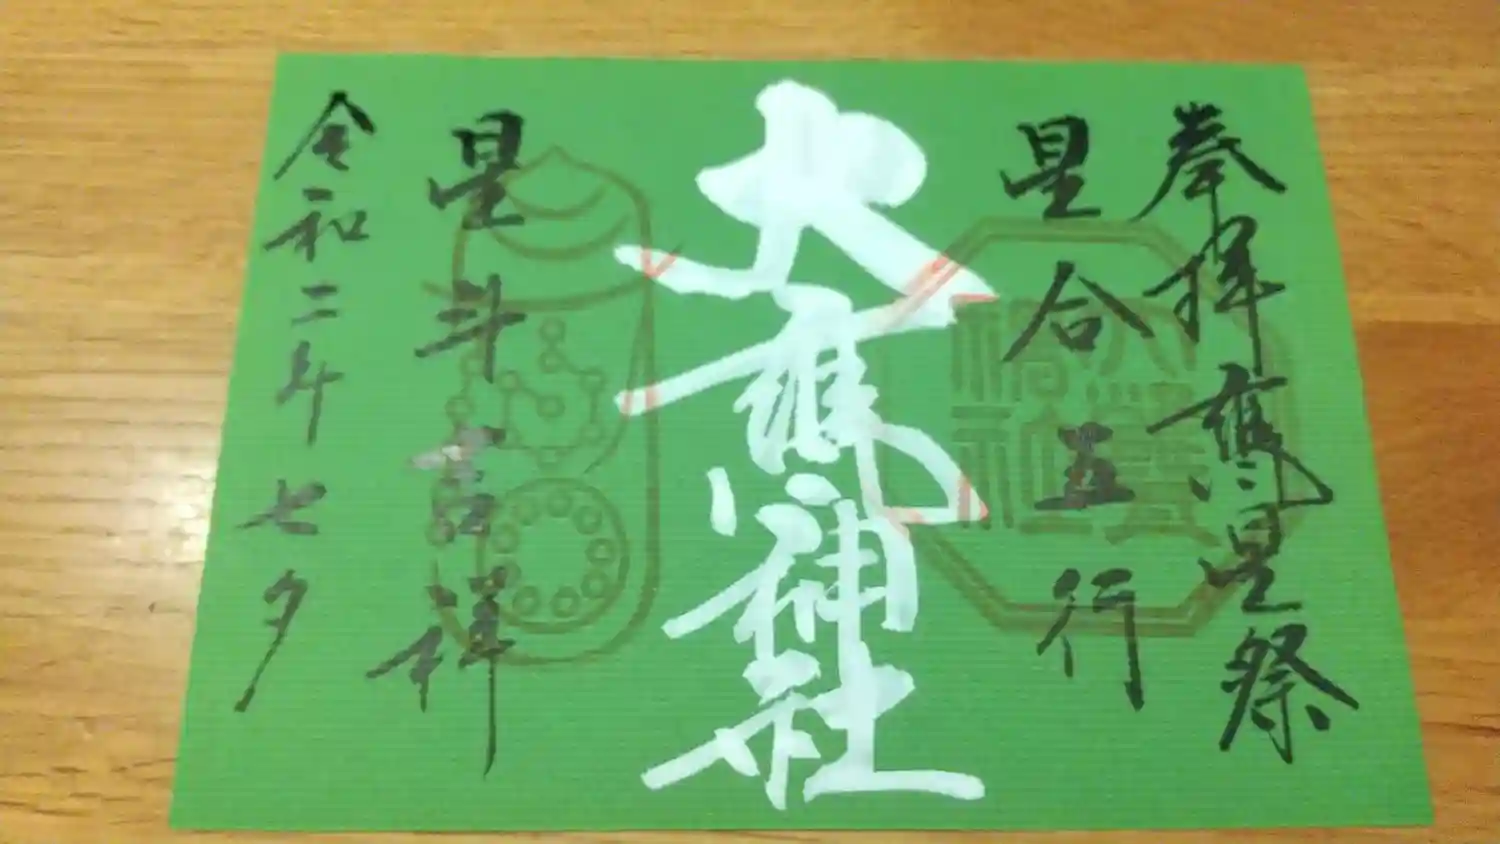 奉拝 鷹星祭
星合五行
大鷹神社
星斗吉祥
令和二年七夕